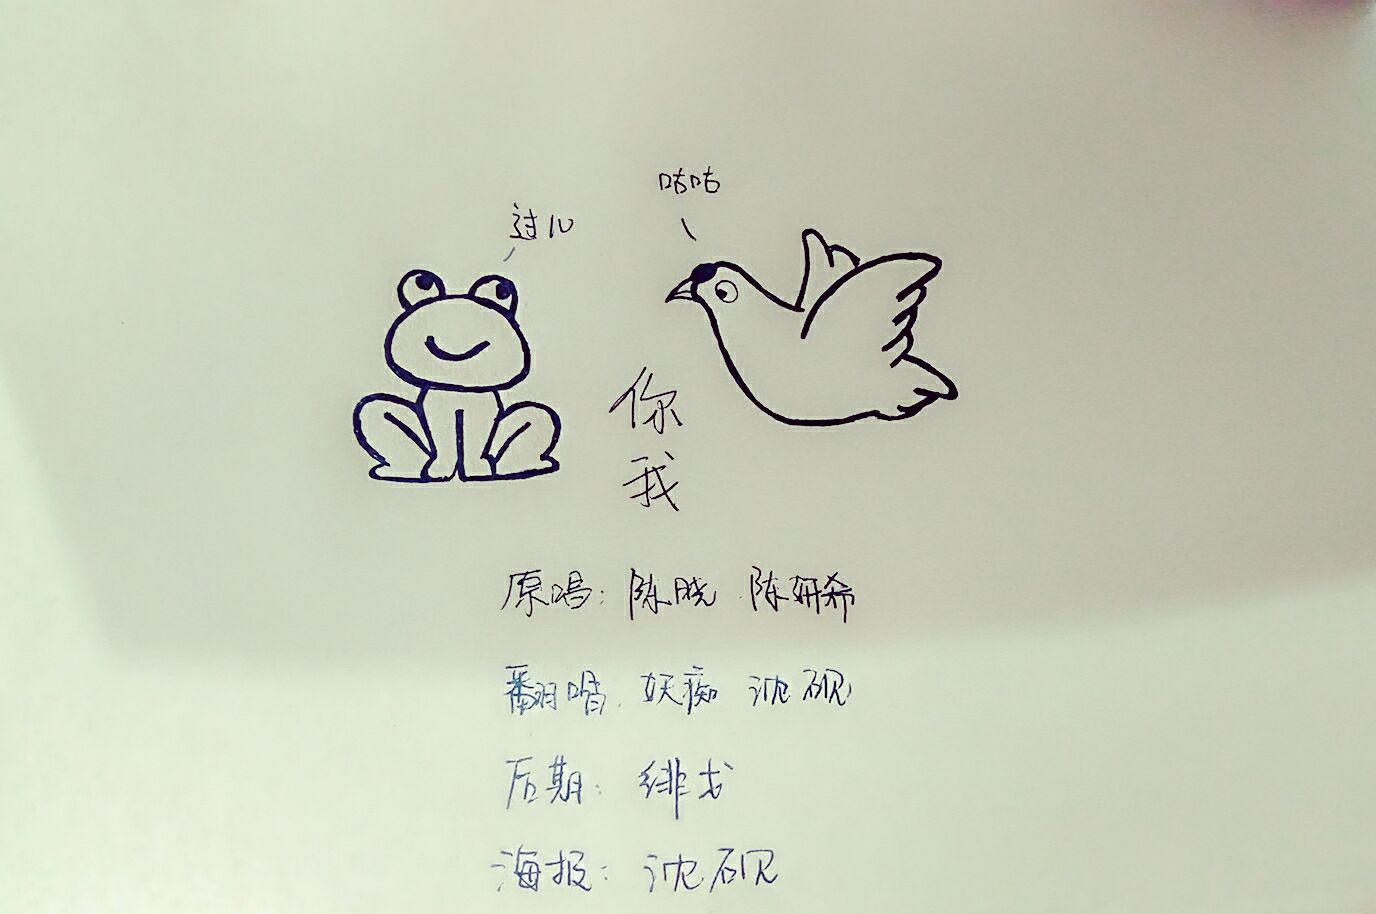 咕咕
过儿
你
我
原唱：陈晓 陈妍希
翻唱：妖痴 沈砚
后期：绯戈
海报：沈砚